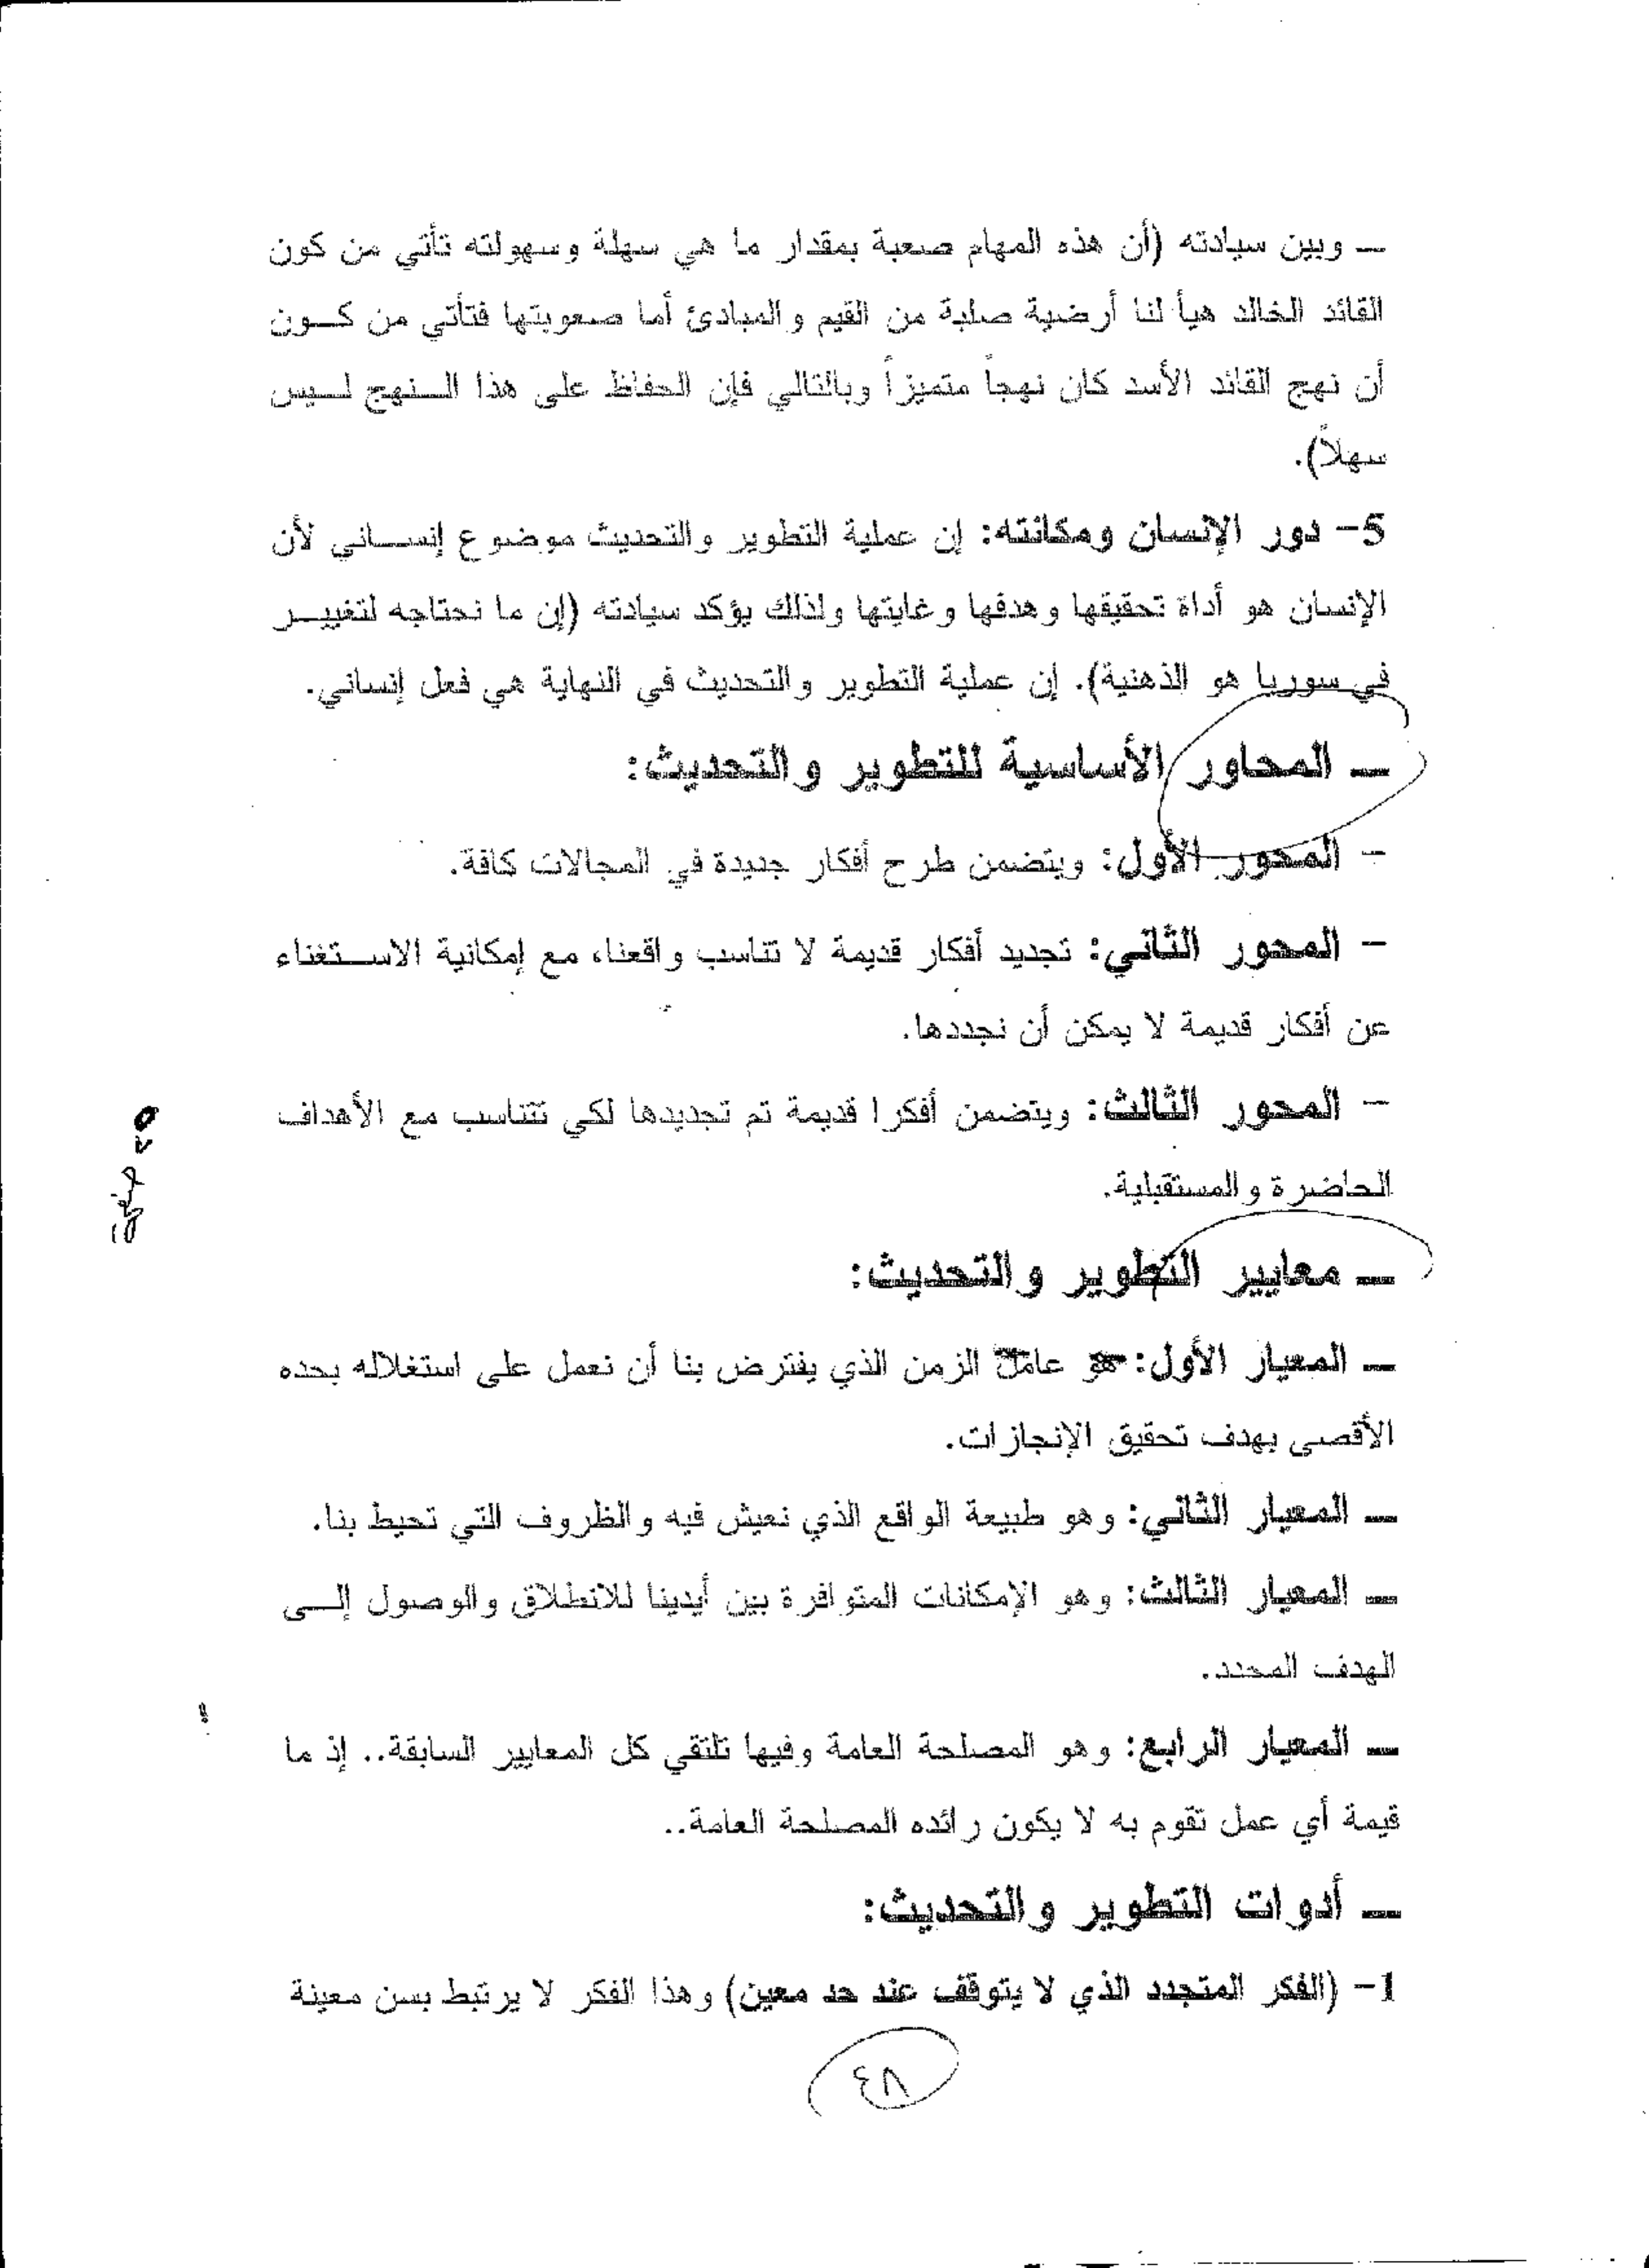 ــ وبين سيادته (أن هذه المهام صعبة بمقدار ما هي سهلة وسهولته تأتي من كون
القائد الخالد هيأ لنا أرضية صلبة من القيم والمبادئ أما صعوبتها فتأتي من كــون
أن نهج القائد الأسد كان نهجاً متميزاً وبالتالي فإن الحفاظ على هذا الــنهج لــيس
سهلاً).
5- دور الإنسان ومكانته: إن عملية التطوير والتحديث موضوع إنســاني لأن
الإنسان هو أداة تحقيقها وهدفها وغايتها ولذلك يؤكد سيادته (إن ما نحتاجه لتغييــر
في سوريا هو الذهنية). إن عملية التطوير والتحديث في النهاية هي فعل إنساني.
ــ المحاور الأساسية للتطوير والتحديث:
- المحور الأول: ويتضمن طرح أفكار جديدة في المجالات كافة.
- المحور الثاني: تجديد أفكار قديمة لا تناسب واقعنا، مع إمكانية الاســتغناء
عن أفكار قديمة لا يمكن أن نجددها.
- المحور الثالث: ويتضمن أفكرا قديمة تم تجديدها لكي تتناسب مع الأهداف
الحاضرة والمستقبلية.
ــ معايير التطوير والتحديث:
ــ المعيار الأول: هو عامل الزمن الذي يفترض بنا أن نعمل على استغلاله بحده
الأقصى بهدف تحقيق الإنجازات.
ــ المعيار الثاني: وهو طبيعة الواقع الذي نعيش فيه والظروف التي تحيط بنا.
ــ المعيار الثالث: وهو الإمكانات المتوافرة بين أيدينا للانطلاق والوصول إلــى
الهدف المحدد.
ــ المعيار الرابع: وهو المصلحة العامة وفيها تلتقي كل المعايير السابقة.. إذ ما
قيمة أي عمل تقوم به لا يكون رائده المصلحة العامة..
ــ أدوات التطوير والتحديث:
1- (الفكر المتجدد الذي لا يتوقف عند حد معين) وهذا الفكر لا يرتبط بسن معينة
٤٨